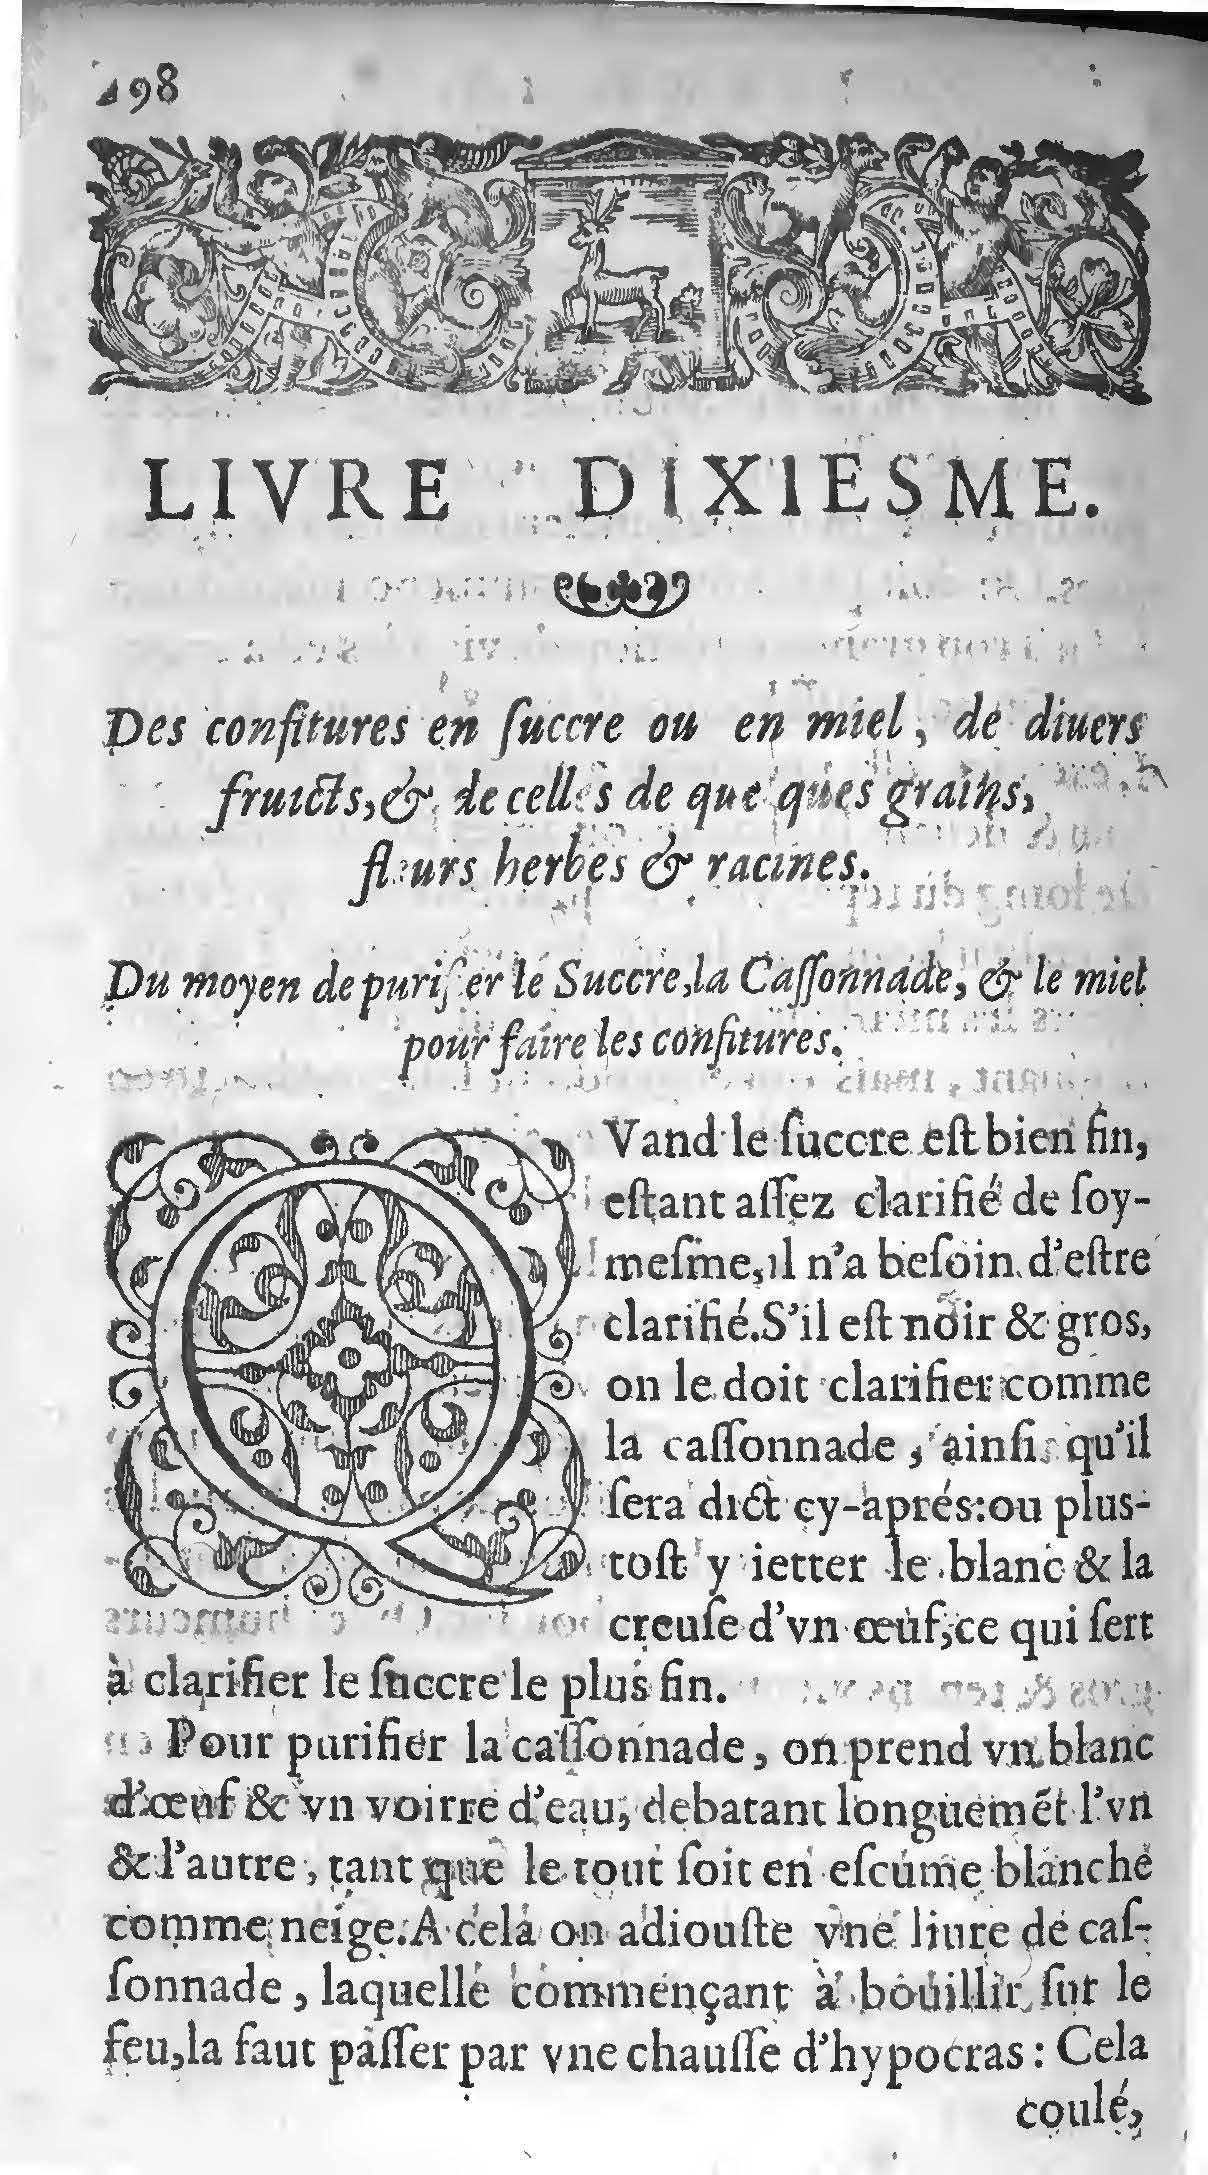 198
LIVRE DIXIESME.
Des confitures en ſuccre ou en miel, de diuers
fruicts, & de celles de quelques grains,
fleurs herbes & racines.
Du moyen de purifier le Succre, la Caſſonnade, & le miel
pour faire les confitures.
QVand le ſuccre eſt bien fin,
eſtant aſſez clarifié de ſoy-
meſme, il n'a beſoin d'eſtre
clarifié. S'il eſt noir & gros,
on le doit clarifier comme
la caſſonnade, ainſi qu'il
ſera dict cy-aprés: ou plus-
toſt y ietter le blanc & la
creuſe d'vn œuf, ce qui ſert
à clarifier le ſuccre le plus fin.
Pour purifier la caſſonnade, on prend vn blanc
d'œuf & vn voirre d'eau, debatant longuemẽt l'vn
& l'autre, tant que le tout ſoit en eſcume blanche
comme neige. A cela on adiouſte vne liure de caſ-
ſonnade, laquelle commençant à boüillir ſur le
feu, la faut paſſer par vne chauſſe d'hypocras: Cela
coulé,